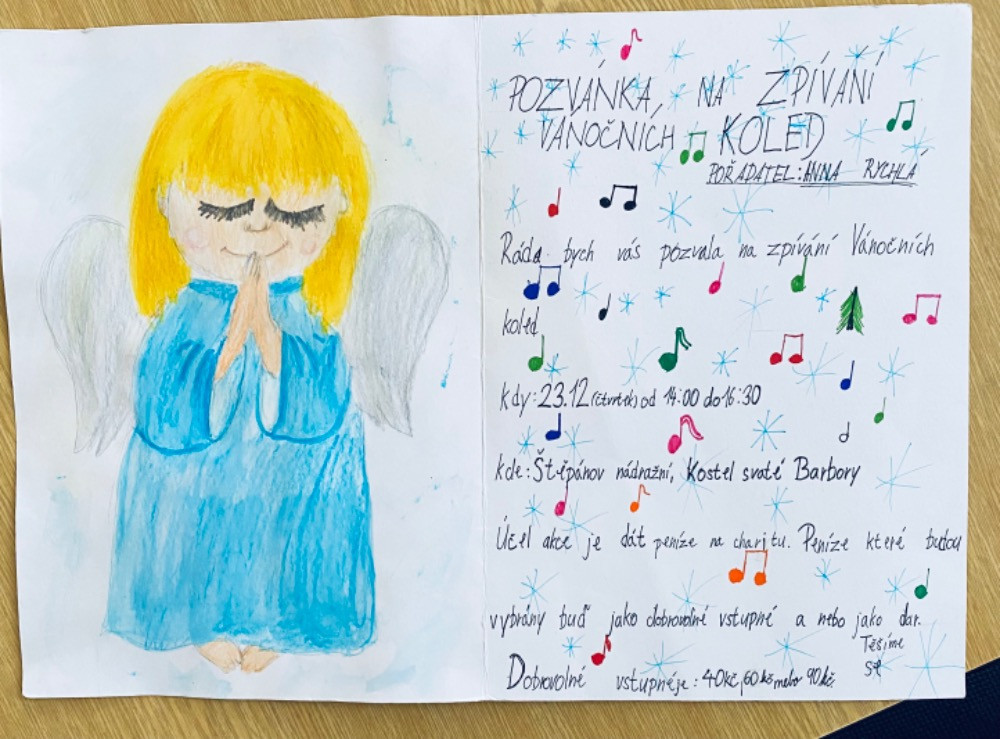 POZVÁNKA, NA ZPÍVÁNÍ
VÁNOČNÍCH KOLED
POŘADATEL: ANNA RYCHLÁ
Ráda bych vás pozvala na zpívání Vánočních
koled
kdy: 23.12 (čtvrtek) od 14:00 do 16:30
kde: Štěpánov nádražní, Kostel svaté Barbory
Účel akce je dát peníze na charitu. Peníze které budou
vybrány buď jako dobrovolné vstupné a nebo jako dar.
Těšíme
se
Dobrovolné vstupné je: 40kč, 60 kč nebo 90kč.